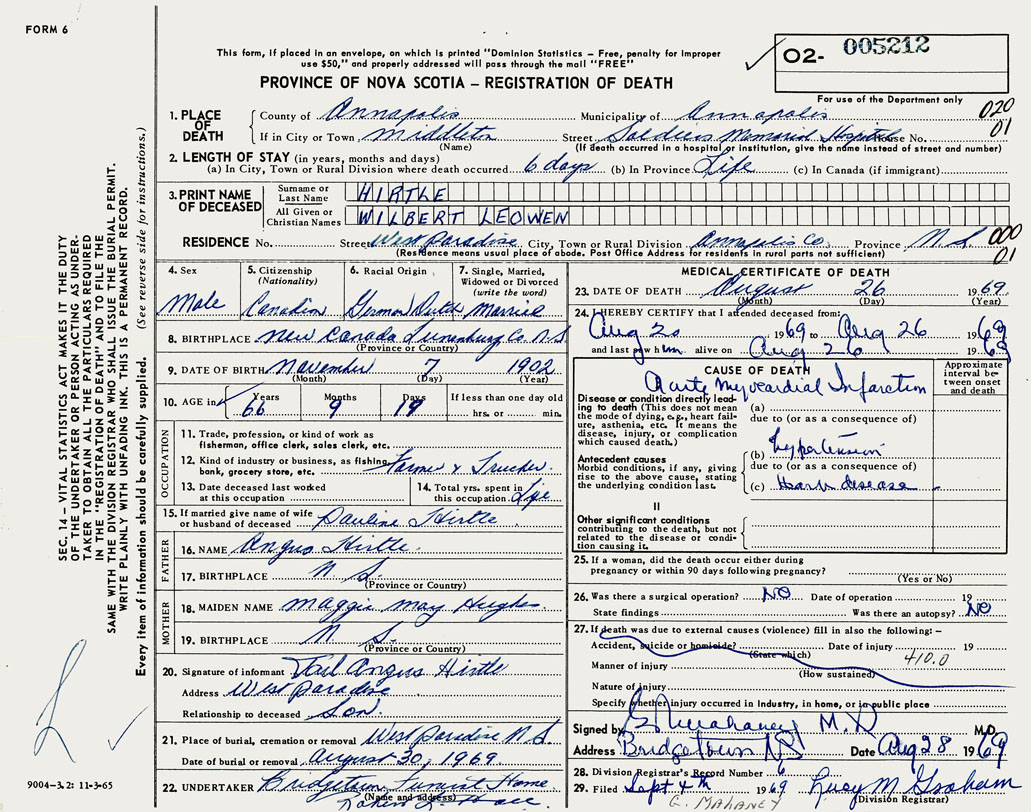 FORM 6
This form, if placed in an envelope, on which is printed "Dominion Statistics – Free, penalty for improper
use $50," and properly addressed will pass through the mail "FREE"
PROVINCE OF NOVA SCOTIA – REGISTRATION OF DEATH
02- 005212
For use of the Department only
1. PLACE OF DEATH County of Annapolis Municipality of Annapolis 020
If in City or Town Middleton Street Soldiers Memorial Hospital House No. 01
(Name) (If death occurred in a hospital or institution, give the name instead of street and number)
2. LENGTH OF STAY (in years, months and days)
(a) In City, Town or Rural Division where death occurred 6 days (b) In Province Life (c) In Canada (if immigrant)
3. PRINT NAME OF DECEASED
Surname or Last Name HIRTLE
All Given or Christian Names WILBERT LEOWEN
RESIDENCE No. Street West Paradise City, Town or Rural Division Annapolis Co. Province N.S. 000
(Residence means usual place of abode. Post Office Address for residents in rural parts not sufficient) 01
4. Sex Male
5. Citizenship (Nationality) Canadian
6. Racial Origin German Dutch
7. Single, Married, Widowed or Divorced (write the word) Married
8. BIRTHPLACE New Canada Lunenburg Co. N.S.
(Province or Country)
9. DATE OF BIRTH November 7 1902
(Month) (Day) (Year)
10. AGE in Years 66 Months 9 Days 19 If less than one day old hrs. or min.
OCCUPATION
11. Trade, profession, or kind of work as
fisherman, office clerk, sales clerk, etc.
12. Kind of industry or business, as fishing, Farmer & Trucker.
bank, grocery store, etc.
13. Date deceased last worked at this occupation
14. Total yrs. spent in this occupation Life
15. If married give name of wife
or husband of deceased Pauline Hirtle
FATHER
16. NAME Angus Hirtle.
17. BIRTHPLACE N.S.
(Province or Country)
MOTHER
18. MAIDEN NAME Maggie May Hughes
19. BIRTHPLACE N.S.
(Province or Country)
20. Signature of informant Angus Hirtle
Address West Paradise
Relationship to deceased Son.
21. Place of burial, cremation or removal West Paradise N.S.
Date of burial or removal August 30, 1969
22. UNDERTAKER Bridgetown Funeral Home
(Name and address)
MEDICAL CERTIFICATE OF DEATH
23. DATE OF DEATH August 26 1969.
(Month) (Day) (Year)
24. I HEREBY CERTIFY that I attended deceased from:
Aug 20 1969 to Aug 26 1969
and last saw him alive on Aug 26 1969
CAUSE OF DEATH
Approximate interval between onset and death
Acute Myocardial Infarction
Disease or condition directly leading
to death (This does not mean
the mode of dying, e.g., heart failure,
asthenia, etc. It means the
disease, injury, or complication
which caused death.)
(a)
due to (or as a consequence of)
Antecedent causes
Morbid conditions, if any, giving
rise to the above cause, stating
the underlying condition last.
(b) hypertension
due to (or as a consequence of)
(c) Heart disease
II
Other significant conditions
contributing to the death, but not
related to the disease or condition
causing it.
25. If a woman, did the death occur either during
pregnancy or within 90 days following pregnancy?
(Yes or No)
26. Was there a surgical operation? NO Date of operation 19
State findings Was there an autopsy? NO
27. If death was due to external causes (violence) fill in also the following: –
Accident, suicide or homicide? Date of injury 19
(State which) 410.0
Manner of injury
(How sustained)
Nature of injury
Specify whether injury occurred in industry, in home, or in public place
Signed by G Mahaney M.D M.D.
Address Bridgetown NS Date Aug 28 1969
28. Division Registrar's Record Number 6
29. Filed Sept 4th 1969 Lucy M. Graham
G. MAHANEY (Division Registrar)
SEC. 14 – VITAL STATISTICS ACT MAKES IT THE DUTY
OF THE UNDERTAKER OR PERSON ACTING AS UNDERTAKER
TO OBTAIN ALL THE PARTICULARS REQUIRED
IN THE "REGISTRATION OF DEATH" AND TO FILE THE
SAME WITH THE DIVISION REGISTRAR WHO SHALL ISSUE THE BURIAL PERMIT.
WRITE PLAINLY WITH UNFADING INK. THIS IS A PERMANENT RECORD.
Every item of information should be carefully supplied. (See reverse side for instructions.)
9004-3.2: 11-3-65